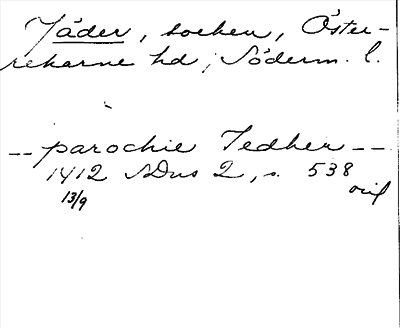 Jäder, socken, Öster-
rekarne hd, Söderm. l.
-- parochie Jedher --
1412 SDns 2, s. 538
13/9 oril